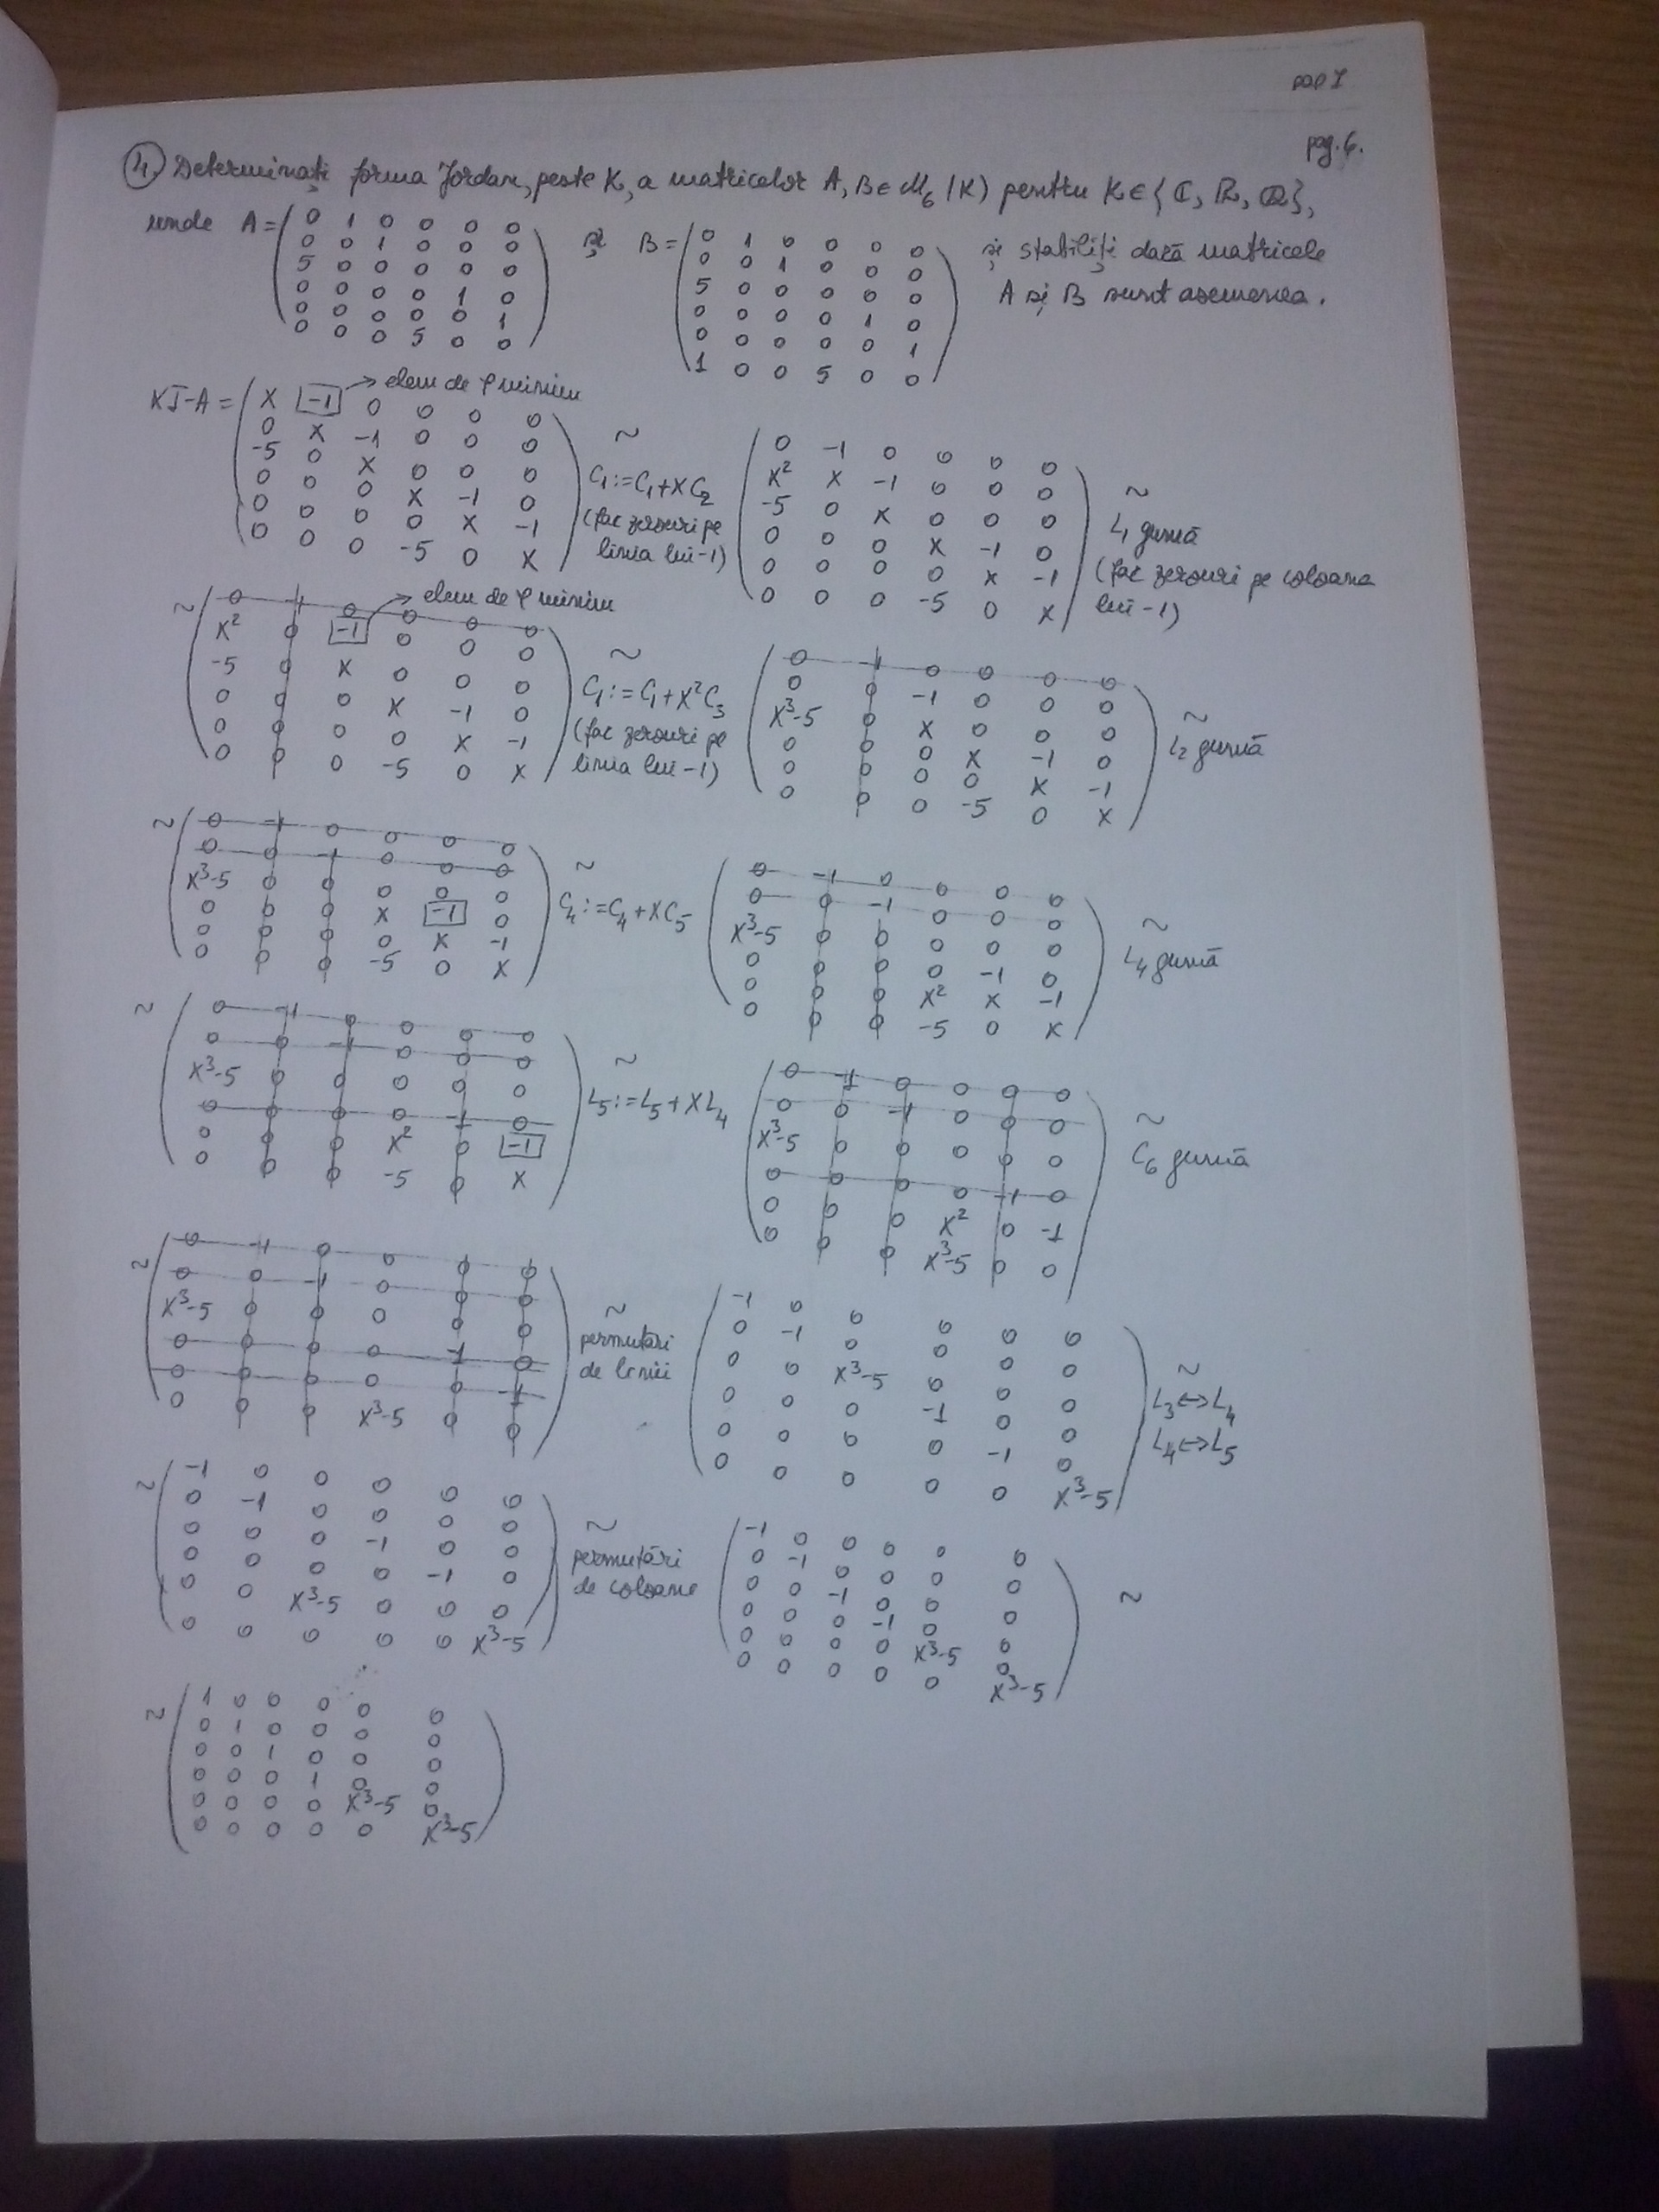 pag 6.
4. Determinați forma Jordan, peste K, a matricelor A, B ∈ M₆(K) pentru K ∈ {ℂ, ℝ, ℚ},
unde A = și B = și stabiliți dacă matricele
0 1 0 0 0 0   0 1 0 0 0 0
0 0 1 0 0 0   0 0 1 0 0 0
5 0 0 0 0 0   5 0 0 0 0 0
0 0 0 0 1 0   0 0 0 0 1 0
0 0 0 0 0 1   0 0 0 0 0 1
0 0 0 5 0 0   1 0 0 5 0 0
A și B sunt asemenea.
XI-A = → elem de φ minim
X -1 0 0 0 0
0 X -1 0 0 0
-5 0 X 0 0 0
0 0 0 X -1 0
0 0 0 0 X -1
0 0 0 -5 0 X
~
C₁:=C₁+XC₂
(fac zerouri pe
linia lui -1)
0 -1 0 0 0 0
X² X -1 0 0 0
-5 0 X 0 0 0
0 0 0 X -1 0
0 0 0 0 X -1
0 0 0 -5 0 X
~
L₁ gumă
(fac zerouri pe coloana
lui -1)
~ → elem de φ minim
0 -1 0 0 0 0
X² 0 -1 0 0 0
-5 0 X 0 0 0
0 0 0 X -1 0
0 0 0 0 X -1
0 0 0 -5 0 X
~
C₁:=C₁+X²C₃
(fac zerouri pe
linia lui -1)
0 -1 0 0 0 0
0 0 -1 0 0 0
X³-5 0 X 0 0 0
0 0 0 X -1 0
0 0 0 0 X -1
0 0 0 -5 0 X
~
L₂ gumă
~
0 -1 0 0 0 0
0 0 -1 0 0 0
X³-5 0 0 0 0 0
0 0 0 X -1 0
0 0 0 0 X -1
0 0 0 -5 0 X
~
C₄:=C₄+XC₅
0 -1 0 0 0 0
0 0 -1 0 0 0
X³-5 0 0 0 0 0
0 0 0 0 -1 0
0 0 0 X² X -1
0 0 0 -5 0 X
~
L₄ gumă
~
0 -1 0 0 0 0
0 0 -1 0 0 0
X³-5 0 0 0 0 0
0 0 0 0 -1 0
0 0 0 X² 0 -1
0 0 0 -5 0 X
~
L₅:=L₅+XL₄
0 -1 0 0 0 0
0 0 -1 0 0 0
X³-5 0 0 0 0 0
0 0 0 0 -1 0
0 0 0 X² 0 -1
0 0 0 X³-5 0 0
~
C₆ gumă
~
0 -1 0 0 0 0
0 0 -1 0 0 0
X³-5 0 0 0 0 0
0 0 0 0 -1 0
0 0 0 0 0 -1
0 0 0 X³-5 0 0
~
permutări
de linii
-1 0 0 0 0 0
0 -1 0 0 0 0
0 0 X³-5 0 0 0
0 0 0 -1 0 0
0 0 0 0 -1 0
0 0 0 0 0 X³-5
~
L₃↔L₄
L₄↔L₅
~
-1 0 0 0 0 0
0 -1 0 0 0 0
0 0 0 -1 0 0
0 0 0 0 -1 0
0 0 X³-5 0 0 0
0 0 0 0 0 X³-5
~
permutări
de coloane
-1 0 0 0 0 0
0 -1 0 0 0 0
0 0 -1 0 0 0
0 0 0 -1 0 0
0 0 0 0 X³-5 0
0 0 0 0 0 X³-5
~
~
1 0 0 0 0 0
0 1 0 0 0 0
0 0 1 0 0 0
0 0 0 1 0 0
0 0 0 0 X³-5 0
0 0 0 0 0 X³-5